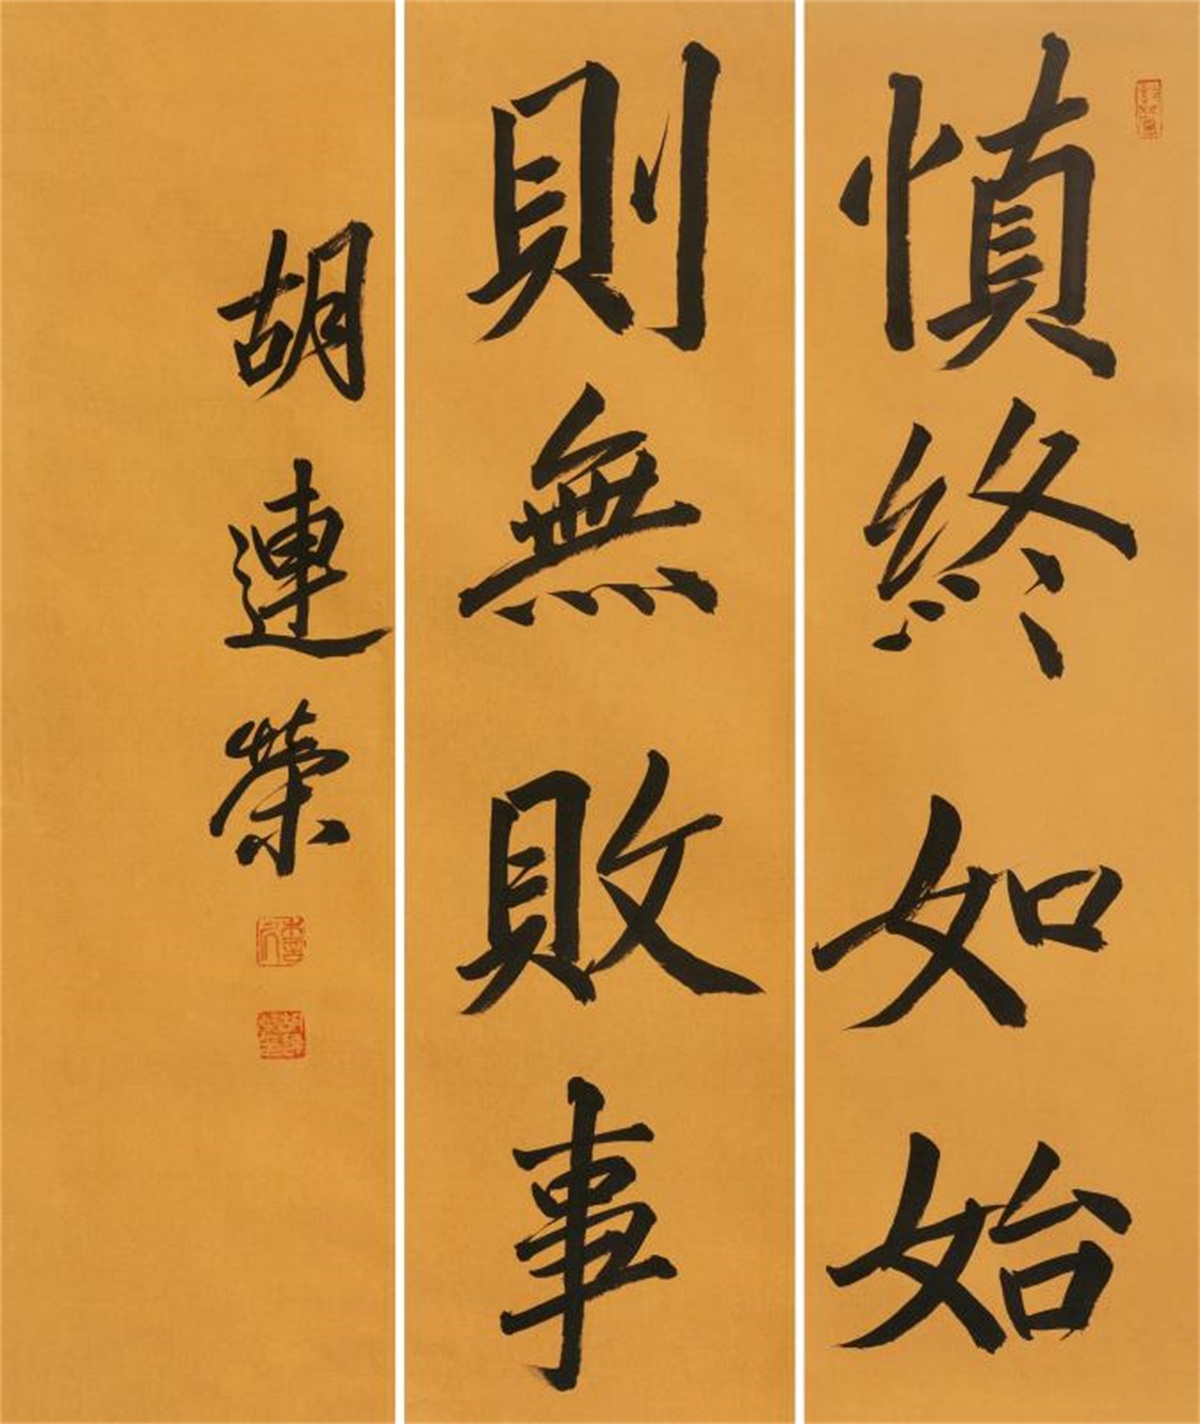 慎終如始
則無敗事
胡連榮